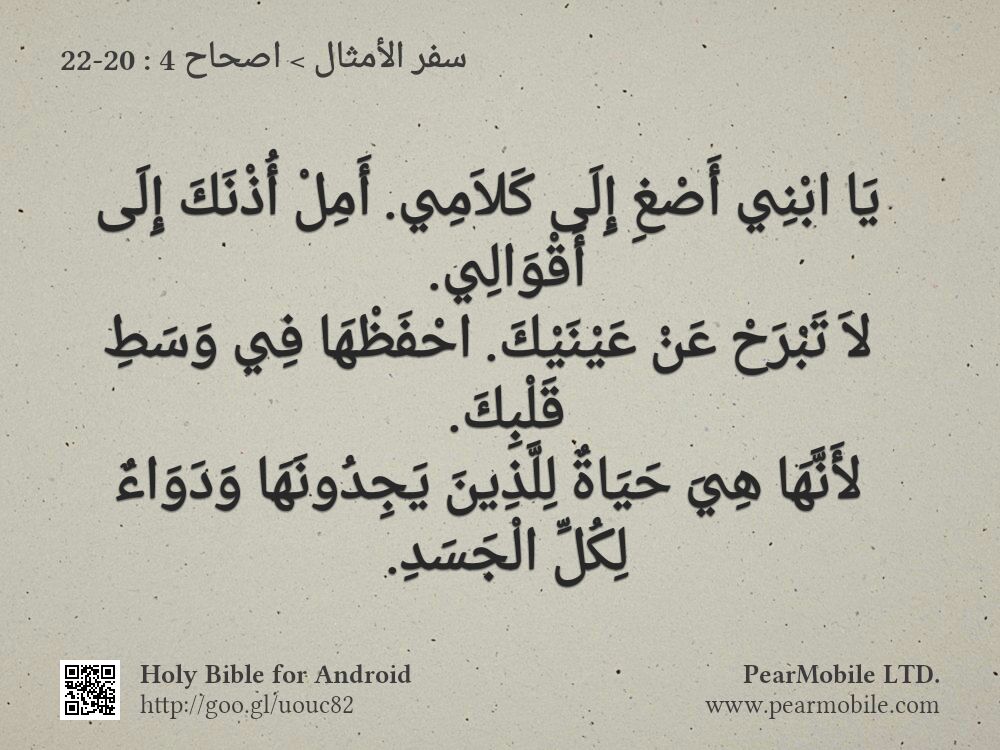 سفر الأمثال > اصحاح 4 : 20-22
يَا ابْنِي أَصْغِ إِلَى كَلاَمِي. أَمِلْ أُذْنَكَ إِلَى
أَقْوَالِي.
لاَ تَبْرَحْ عَنْ عَيْنَيْكَ. احْفَظْهَا فِي وَسَطِ
قَلْبِكَ.
لأَنَّهَا هِيَ حَيَاةٌ لِلَّذِينَ يَجِدُونَهَا وَدَوَاءٌ
لِكُلِّ الْجَسَدِ.
Holy Bible for Android
http://goo.gl/uouc82
PearMobile LTD.
www.pearmobile.com